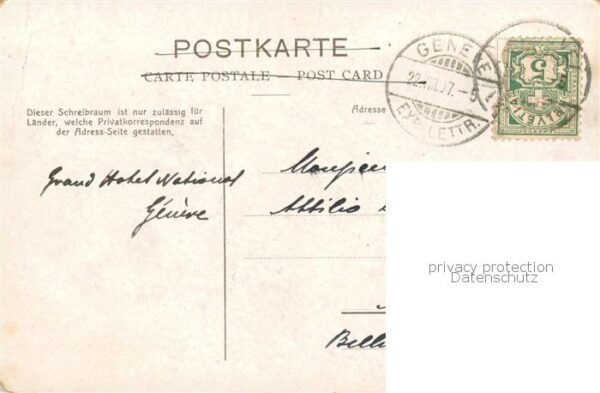 POSTKARTE
CARTE POSTALE — POST CARD
Dieser Schreibraum ist nur zulässig für
Länder, welche Privatkorrespondenz auf
der Adress-Seite gestatten.
Adresse
GENÈVE
22. III. 07. – 5
EXP. LETTR.
5
HELVETIA
Grand Hotel National
Genève
Monsieur
Attilio
Belli
privacy protection
Datenschutz